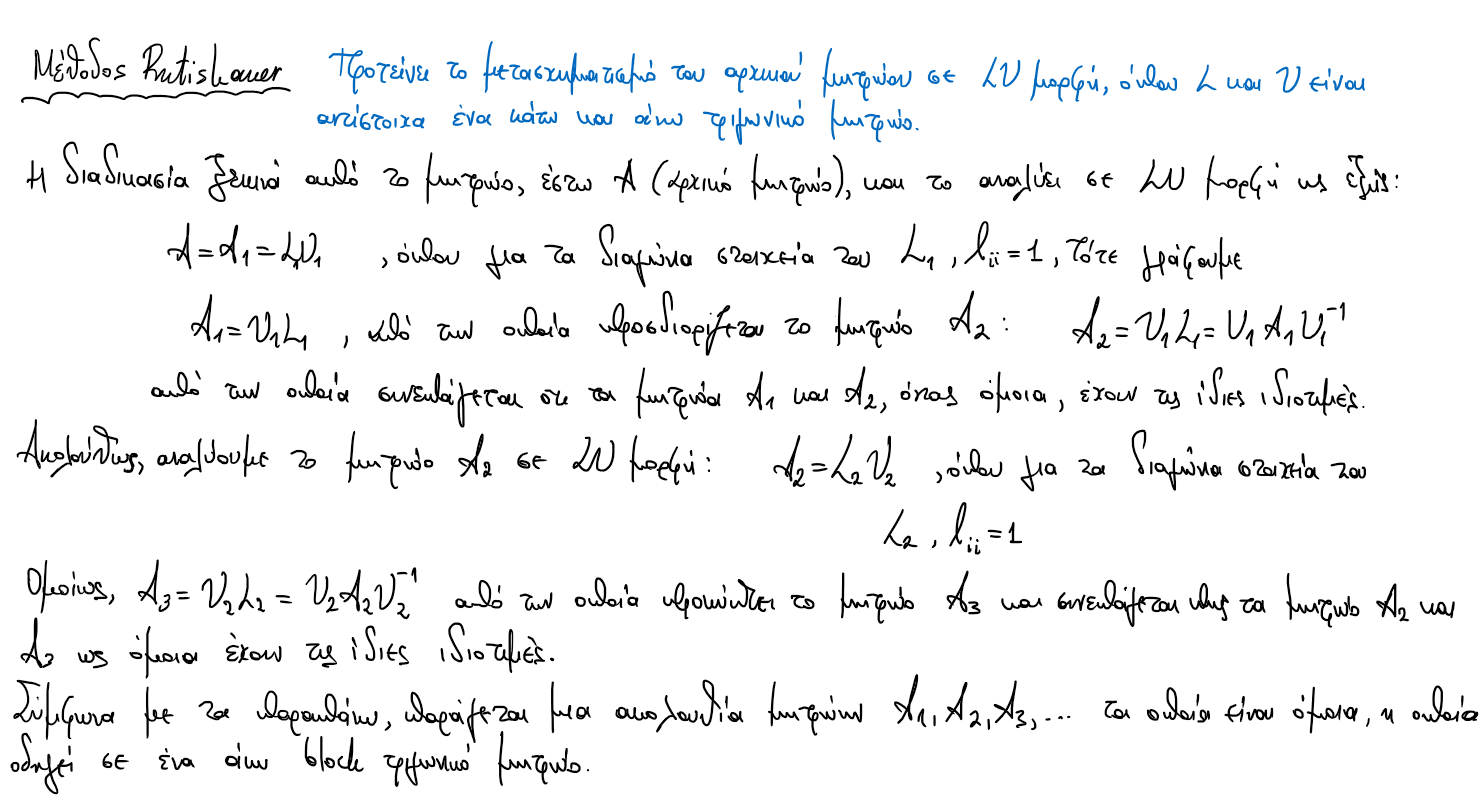 Μέθοδος Rutishauer Προτείνει το μετασχηματισμό του αρχικού μητρώου σε LU μορφή, όπου L και U είναι
αντίστοιχα ένα κάτω και άνω τριγωνικό μητρώο.
Η διαδικασία ξεκινά από το μητρώο, έστω A (αρχικό μητρώο), και το αναλύει σε LU μορφή ως εξής:
A = A₁ = L₁U₁ , όπου για τα διαγώνια στοιχεία του L₁, lᵢᵢ = 1, τότε γράφουμε
A₁ = U₁L₁ , από την οποία προσδιορίζεται το μητρώο A₂ : A₂ = U₁L₁ = U₁A₁U₁⁻¹
από την οποία συνεπάγεται ότι τα μητρώα A₁ και A₂, όντας όμοια, έχουν τις ίδιες ιδιοτιμές.
Ακολούθως, αναλύουμε το μητρώο A₂ σε LU μορφή : A₂ = L₂U₂ , όπου για τα διαγώνια στοιχεία του
L₂ , lᵢᵢ = 1
Ομοίως, A₃ = U₂L₂ = U₂A₂U₂⁻¹ από την οποία προκύπτει το μητρώο A₃ και συνεπάγεται πως τα μητρώο A₂ και
A₃ ως όμοια έχουν τις ίδιες ιδιοτιμές.
Σύμφωνα με τα παραπάνω, παράγεται μια ακολουθία μητρώων A₁, A₂, A₃, ... τα οποία είναι όμοια, η οποία
οδηγεί σε ένα άνω block τριγωνικό μητρώο.